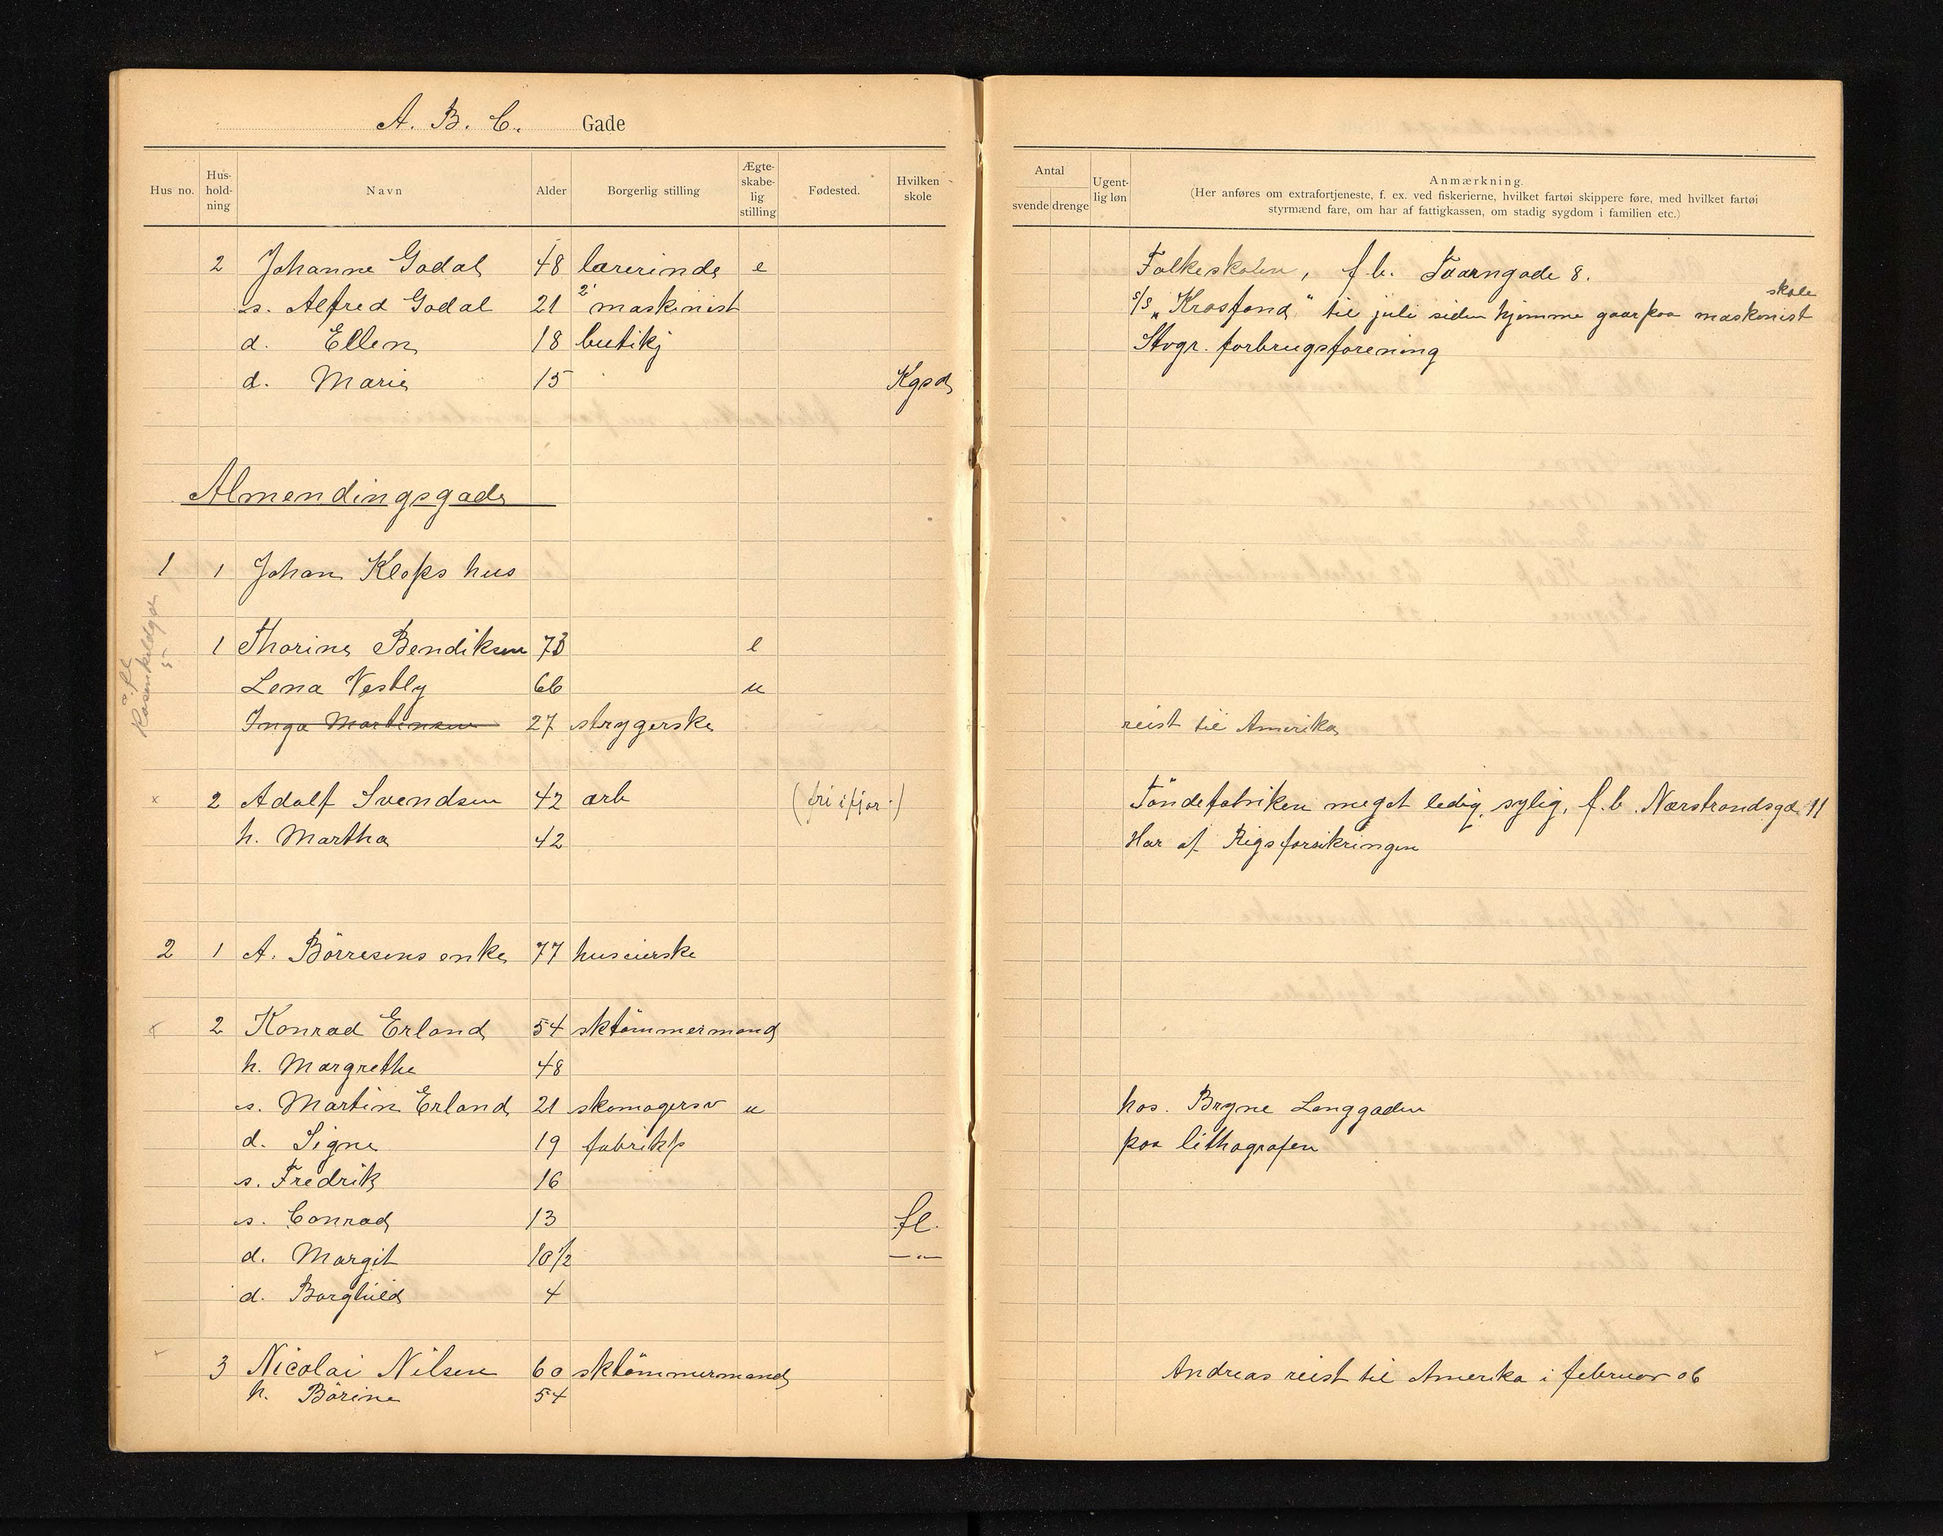 A. B. C. Gade
Hus no. Hus-hold-ning Navn Alder Borgerlig stilling Ægte-skabe-lig stilling Fødested. Hvilken skole
Antal svende drenge Ugent-lig løn Anmærkning.
(Her anføres om extrafortjeneste, f. ex. ved fiskerierne, hvilket fartøi skippere føre, med hvilket fartøi
styrmænd fare, om har af fattigkassen, om stadig sygdom i familien etc.)
2 Johanne Godal 48 lærerinde e Folkeskolen, f. b. Taarngade 8.
s. Alfred Godal 21 2' maskinist S/S „Krosfond" til juli siden hjemme gaar paa maskinist skole
d. Ellen 18 butikj Stvgr. forbrugsforening
d. Marie 15 Kgsd
Almendingsgade
1 1 Johan Kleps hus
1 Thorine Bendiksen 73 e
Lena Vestly 66 u
Inga Martinsen 27 strygerske reist til Amerika
x 2 Adolf Svendsen 42 arb (fri i fjor.) Töndefabriken meget ledig, sylig, f. b. Nærstrandsgd. 11
h. Martha 42 Har af Rigsforsikringen
2 1 A. Börresens enke 77 huseierske
x 2 Konrad Erland 54 sktömmermand
h. Margrethe 48
s. Martin Erland 21 skomagersv u hos. Bryne Langgaden
d. Signe 19 fabrikp paa lithografen
s. Fredrik 16
s. Conrad 13 fl.
d. Margit 10 1/2 — " —
d. Borghild 4
x 3 Nicolai Nilsen 60 sktömmermand Andreas reist til Amerika i februar 06
h. Börine 54